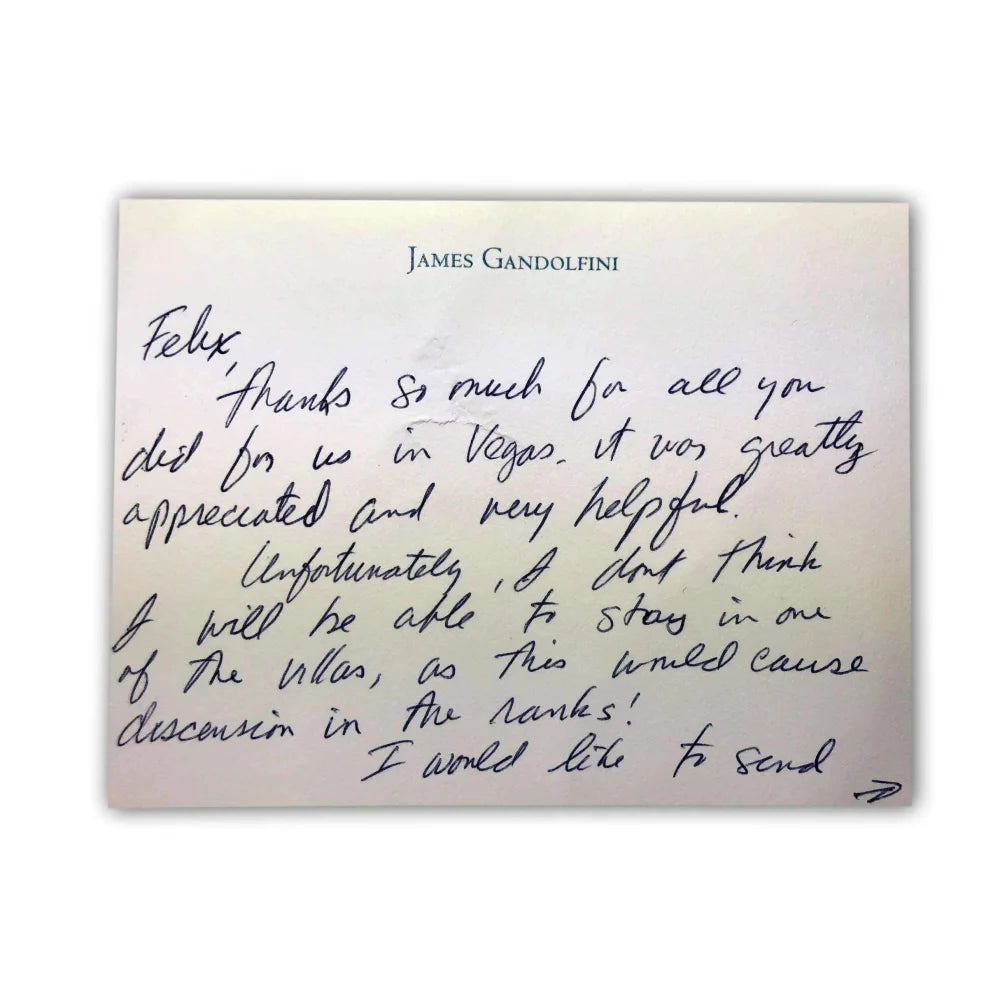 JAMES GANDOLFINI
Felix,
thanks so much for all you
did for us in Vegas. it was greatly
appreciated and very helpful.
Unfortunately, I dont think
I will be able to stay in one
of the villas, as this would cause
discension in the ranks!
I would like to send
→